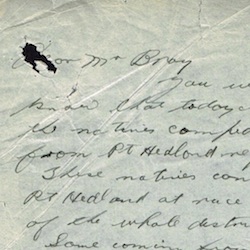 Dear Mr Bray
You
that today
the natives
from Pt Hedland
These natives
Pt Hedland at race
of the whole
Some coming